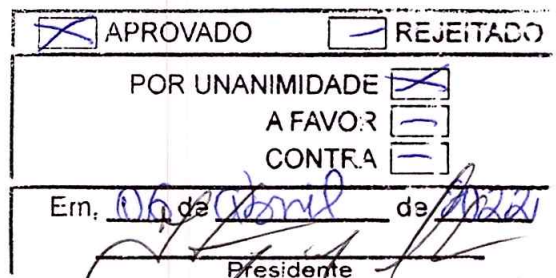 APROVADO REJEITADO
POR UNANIMIDADE
A FAVOR
CONTRA
Em, 06 de Abril de 2022
Presidente